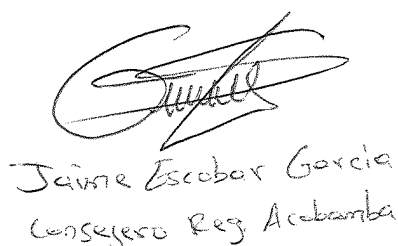 Jaime Escobar García
Consejero Reg. Acobamba